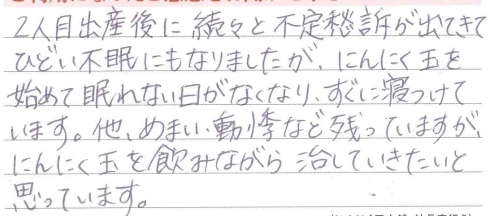 2人目出産後に続々と不定愁訴が出てきて
ひどい不眠にもなりましたが、にんにく玉を
始めて眠れない日がなくなり、すぐに寝つけて
います。他、めまい・動悸など残っていますが、
にんにく玉を飲みながら治していきたいと
思っています。